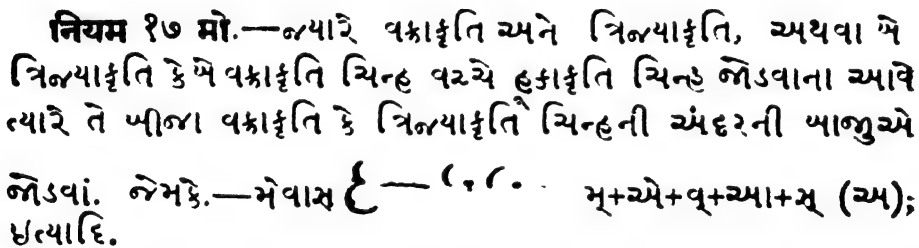 નિયમ ૧૭ મો.—જ્યારે વક્રાકૃતિ અને ત્રિજ્યાકૃતિ, અથવા બે
ત્રિજ્યાકૃતિ કે બે વક્રાકૃતિ ચિન્હ વચ્ચે હૂકાકૃતિ ચિન્હ જોડવાના આવે
ત્યારે તે બીજા વક્રાકૃતિ કે ત્રિજ્યાકૃતિ ચિન્હની અંદરની બાજુએ
જોડવાં. જેમકે.—મેવાસ — મ્+એ+વ્+આ+સ્ (અ);
ઇત્યાદિ.